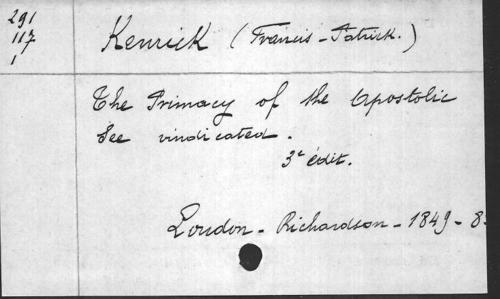 291
117
1
Kenrick (Francis-Patrick.)
The Primacy of the Apostolic
See vindicated.
3e édit.
London - Richardson - 1849 - 8